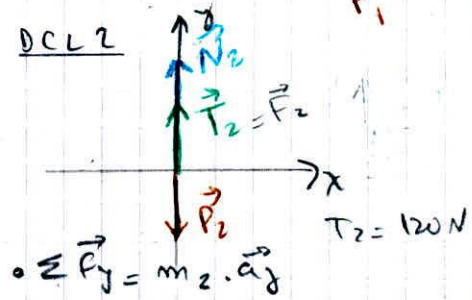 P₁
DCL 2
y
N⃗₂
T⃗₂ = F⃗₂
x
P⃗₂
T₂ = 120 N
• Σ F⃗y = m₂ . a⃗y